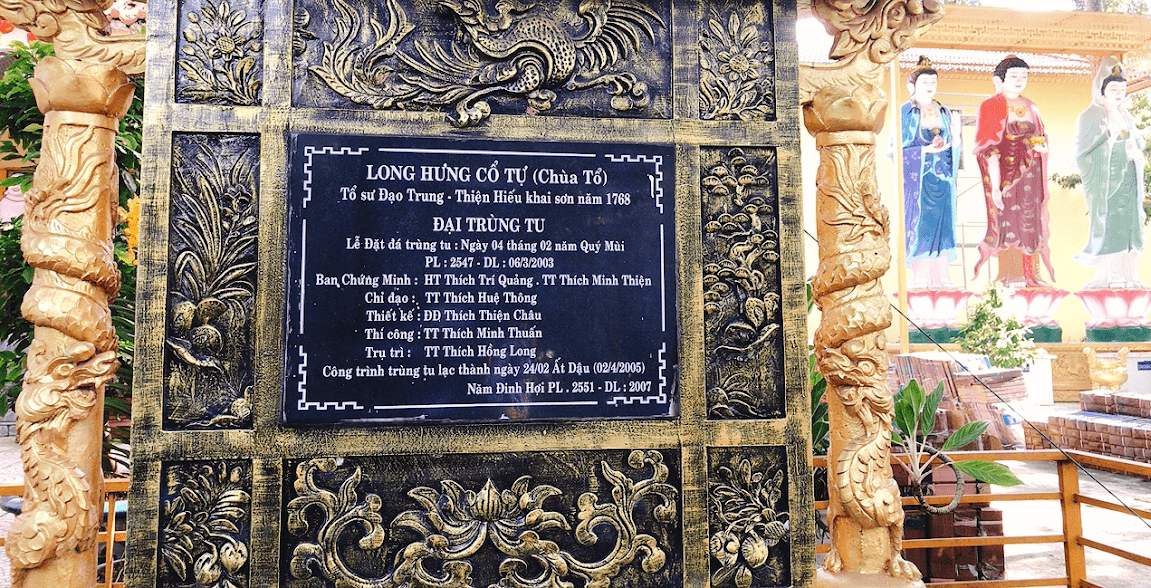 LONG HƯNG CỔ TỰ (Chùa Tổ)
Tổ sư Đạo Trung - Thiện Hiếu khai sơn năm 1768
ĐẠI TRÙNG TU
Lễ Đặt đá trùng tu : Ngày 04 tháng 02 năm Quý Mùi
PL : 2547 - DL : 06/3/2003
Ban Chứng Minh : HT Thích Trí Quảng . TT Thích Minh Thiện
Chỉ đạo : TT Thích Huệ Thông
Thiết kế : ĐĐ Thích Thiện Châu
Thi công : TT Thích Minh Thuấn
Trụ trì : TT Thích Hồng Long
Công trình trùng tu lạc thành ngày 24/02 Ất Dậu (02/4/2005)
Năm Đinh Hợi PL . 2551 - DL : 2007